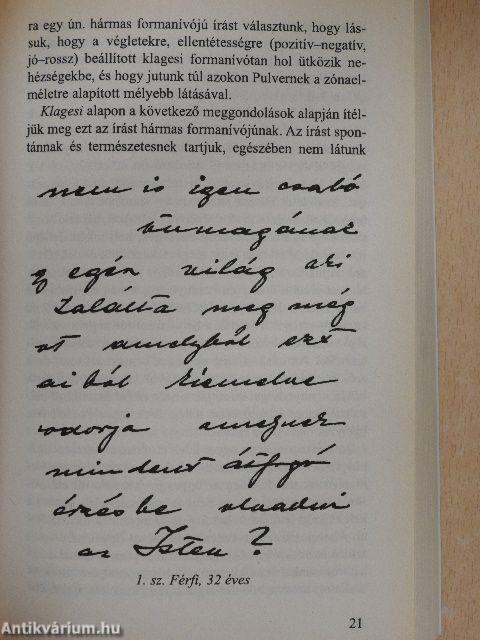 ra egy ún. hármas formanívójú írást választunk, hogy lás-
suk, hogy a végletekre, ellentétességre (pozitív–negatív,
jó–rossz) beállított klagesi formanívótan hol ütközik ne-
hézségekbe, és hogy jutunk túl azokon Pulvernek a zónael-
méletre alapított mélyebb látásával.
Klagesi alapon a következő meggondolások alapján ítél-
jük meg ezt az írást hármas formanívójúnak. Az írást spon-
tánnak és természetesnek tartjuk, egészében nem látunk
nem is igen csabó
önmagának
egén világ aki
találta meg még
ot amelyből ezt
aiból kiemelve
odorja amelynek
mindent átfogó
érzésbe olvadni
az Isten?
1. sz. Férfi, 32 éves
21
Antikvárium.hu